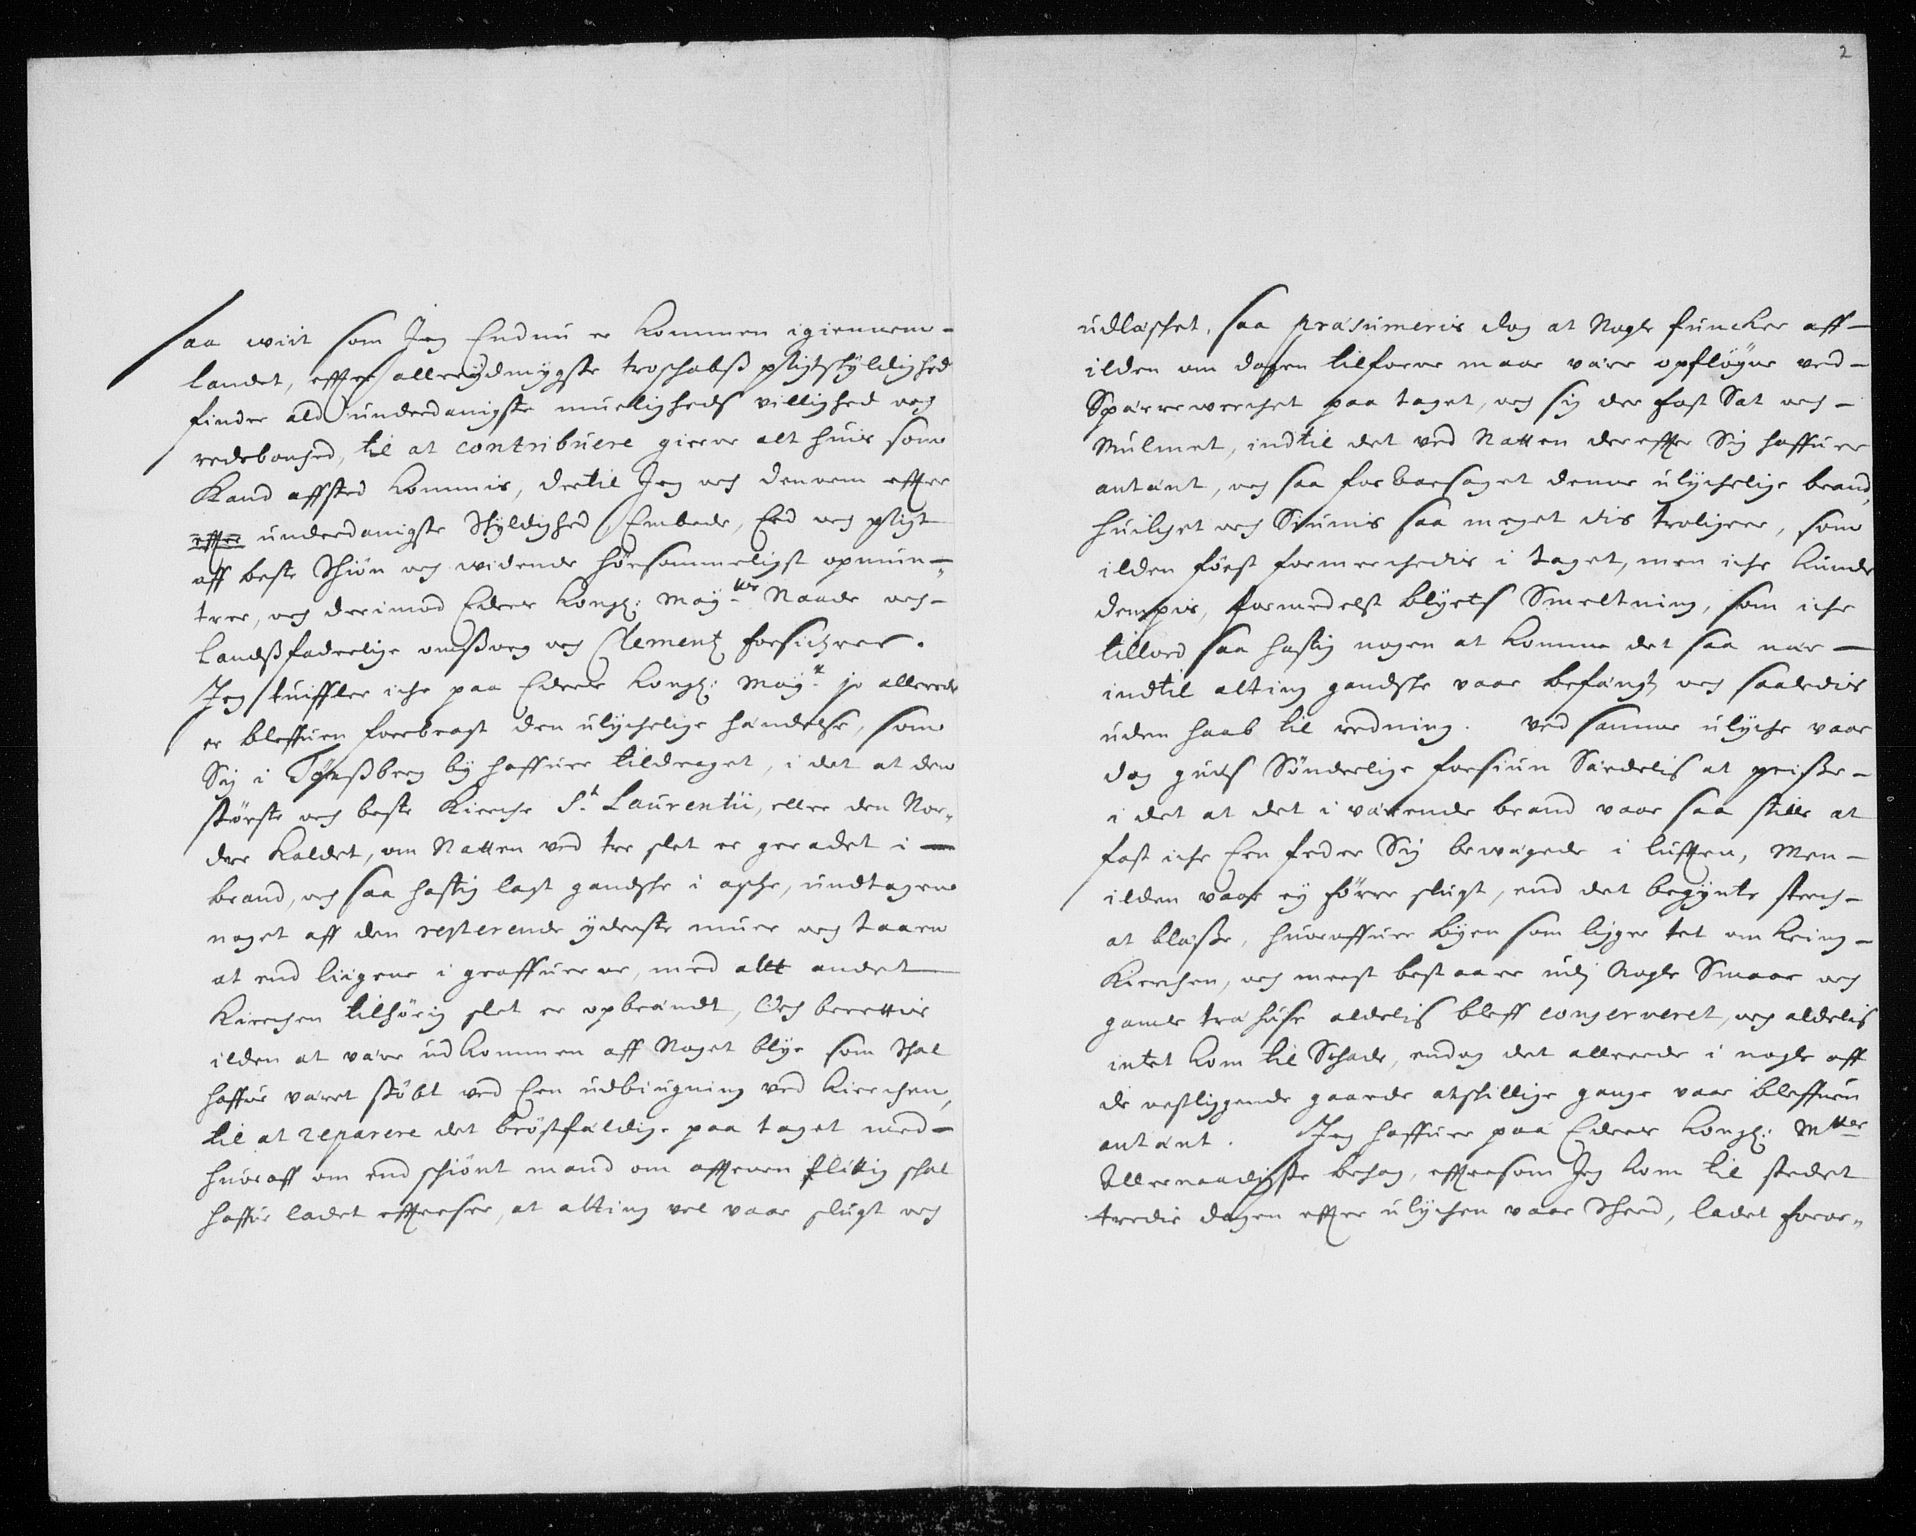 saa wiit som Jeg Endnu er kommen igiennem-
landet, effter allerydmygste troschabß pligtskyldighed
finder ald underdanigste mueligheds villighed och
redebonhed, til at contribuere gierne alt huis som
kand affsted kommis, dertil Jeg och dennem effter
effter underdanigste Skyldighed, Embede, Eed och pligt
aff beste Schiön och widende hörsommeligst opmun-
trer, och derimod Eders Kongl: May:ttes Naade och-
landßfaderlige omßorg och Clementz forsichrer.
Jeg tuiffler iche paa Eders Kongl: May:tt jo allerede
er bleffuen forebragt den ulychelige hændelse, som
Sig i Tönßberg by haffuer tildraget, i det at den
största och beste Kierche S:t Laurentii, eller den Nor-
dre kaldet, om Natten ved tre slet er geradet i -
brand, och saa hastig lagt gandske i asche, undtagen
noget aff den resterende yderste muer och taarn
at end liigene i graffuerne, med alt andet
Kierchen tilhörig slet er opbrændt, Och berettis
ilden at være udkommen aff Noget blye som schal
haffue været stöbt ved Een udbiugning ved Kierchen,
til at reparere det bröstfældige paa taget med-
huoraff om end schiönt mand om afftenen flittig schal
haffue ladet effterse, at alting vel vaar slugt och
2
udlæschet, saa præsumeris dog at Nogle funcker aff-
ilden om dagen tilforne maa være opflöyne ved-
Sparreverchet paa taget, och sig der fast Sat och-
Mulmet, indtil det ved Natten dereffter Sig haffuer
antænt, och saa foraarsaget denne ulychelige brand,
huilchet och Siunis saa meget dis troligere, som
ilden först formerchedis i taget, men iche kunde
dempis, formedelst blyets Smeltning, som iche
tillod saa hastig nogen at komme det saa nær-
indtil alting gandske vaar befængt och saaledis
uden haab til redning. Ved samme ulyche vaar
dog guds Sönderlige forsiun Særdelis at prisse-
i det at det i værende brand vaar saa stille at
fast iche Een feder Sig bewægede i lufften, Men-
ilden vaar ej förre slugt, end det begynte sterch-
at blæße, huoraffuer byen som ligger tet om kring-
Kierchen, och meest bestaar udj Nogle Smaae och
gamle træhuse aldelis bleff conserveret, och aldelis
intet kom til Schade, endog det allerede i nogle aff
de nestliggende gaarde atschillige gange vaar bleffuen
antænt. Jeg haffuer paa Eders Kongl: Mttes
Allernaadigste behag, efftersom Jeg kom til stedet
tredie dagen effter ulychen vaar Scheed, ladet forar-